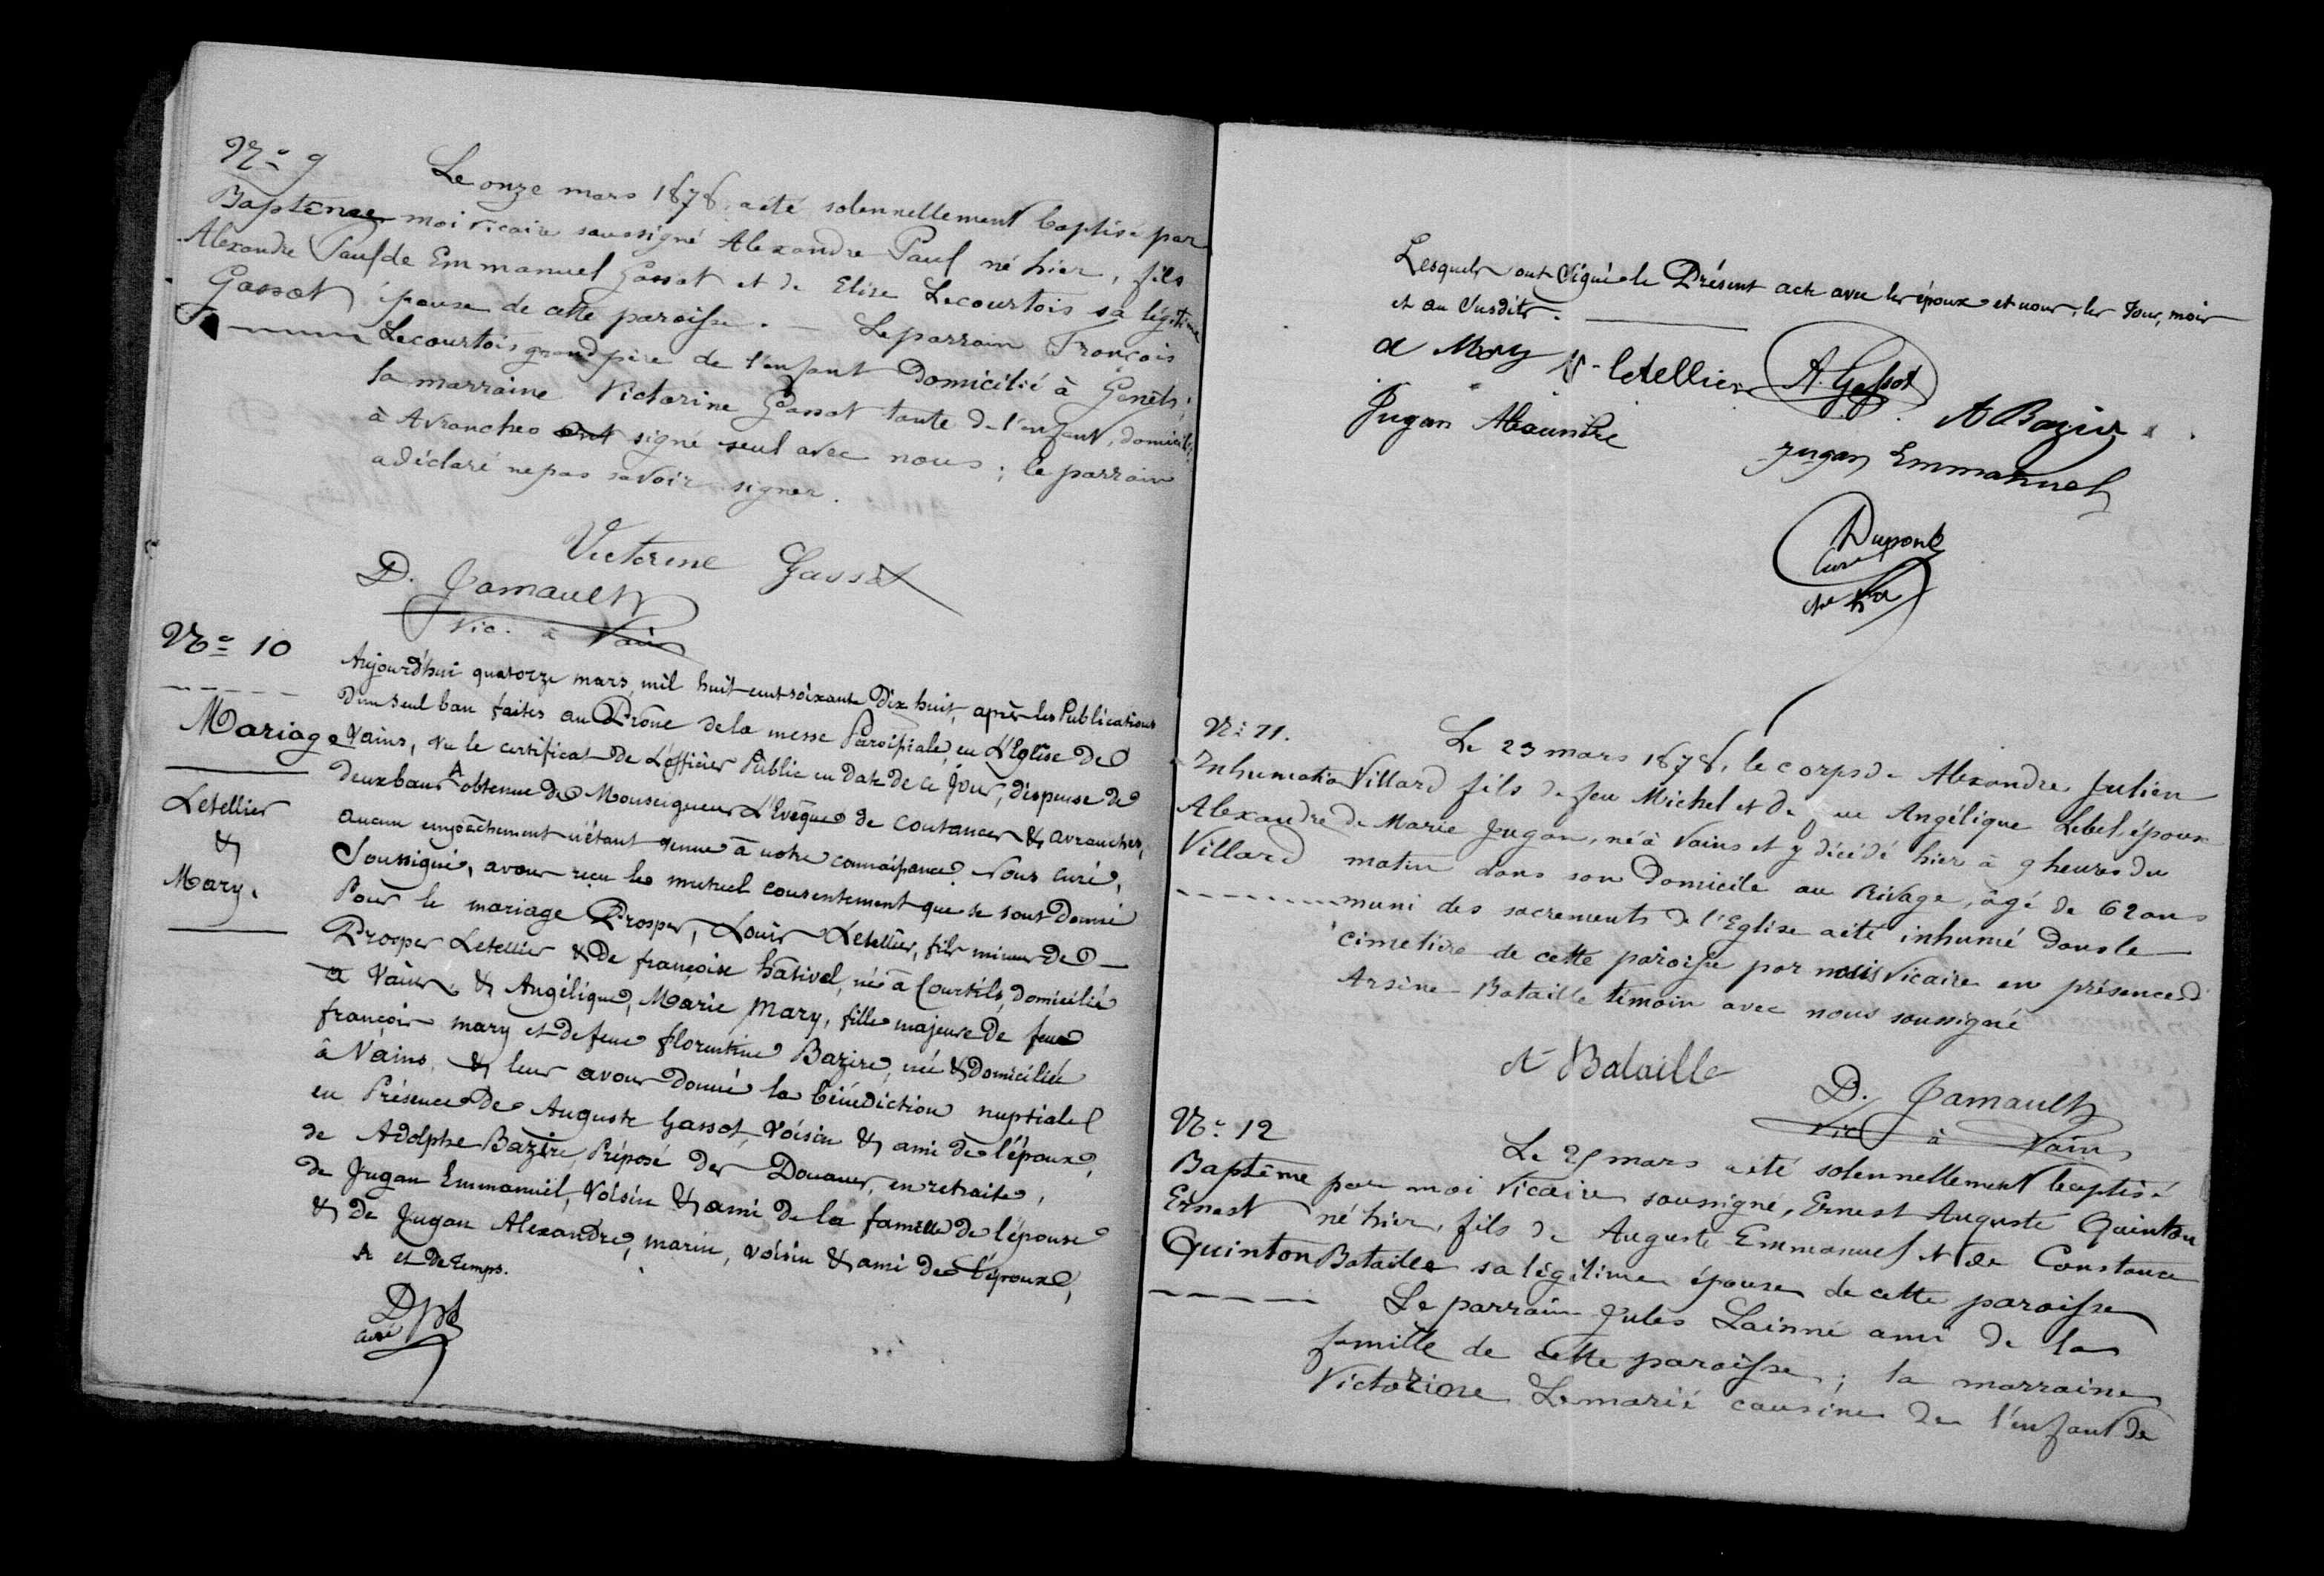 Nº 9
Le onze mars 1878, a été solennellement baptisé par
Baptême
moi vicaire soussigné Alexandre Paul né hier, fils
Alexandre Paul
de Emmanuel Gassot et de Elise Lecourtois sa légitime
Gassot
épouse de cette paroisse. — Le parrain François
Lecourtois grand père de l'enfant domicilié à Genêts;
la marraine Victorine Gassot tante de l'enfant, domiciliée
à Avranches ont signé seul avec nous; le parrain
a déclaré ne pas savoir signer.
Victorine Gassot
D. Jamault
Vic. à Vains
Nº 10
Mariage
Letellier
&
Mary.
Aujourd'hui quatorze mars, mil huit cent soixante Dix huit, après les Publications
d'un seul ban faites au Prône de la messe Paroissiale, en L'Eglise de
Vains, vu le certificat de L'officier Public en Date de ce Jour, dispense de
deux bans obtenue de Monseigneur L'Evêque de Coutances & Avranches,
aucun empêchement n'étant venu à notre connaissance. Nous curé,
Soussigné, avons reçu le mutuel consentement que se sont Donné
Pour le mariage Prosper, Louis Letellier, fils mineur de
Prosper Letellier & De françoise hativel, né à Courtils, domicilié
à Vains, & Angélique, Marie Mary, fille majeure De feu
françois mary et de feue florentine Bazire, née & domiciliée
à Vains, & leur avons donné la bénédiction nuptiale
en Présence De Auguste Gassot, Voisin & ami de l'époux,
de Adolphe Bazire, Préposé des Douanes, en retraite,
de Jugan Emmanuel, Voisin & ami de la famille de l'épouse
& de Jugan Alexandre, marin, voisin & ami de l'époux,
et de temps.
Dpt
curé
Lesquels ont Signé le Présent acte avec les époux et nous, les Jour, mois
et an Susdits.
a Mary
Letellier
A. Gassot
A Bazire
Jugan Alexandre
Jugan Emmanuel
Dupont
Curé
Nº 11.
Le 23 mars 1878, le corps de Alexandre Julien
Inhumation
Villard fils de feu Michel et de feue Angélique Lebel, époux
Alexandre
de Marie Jugan, né à Vains et y décédé hier à 9 heures du
Villard
matin dans son domicile au Rivage, âgé de 62 ans
muni des sacrements de l'Eglise a été inhumé dans le
cimetière de cette paroisse par nous Vicaire en présence d'
Arsène Bataille témoin avec nous soussigné
A Bataille
D. Jamault
Vic à Vains
Nº 12
Le 25 mars a été solennellement baptisé
Baptême
par moi Vicaire soussigné, Ernest Auguste Quinton
Ernest
né hier, fils de Auguste Emmanuel et de Constance
Quinton
Bataille sa légitime épouse de cette paroisse
Le parrain Jules Lainné ami de la
famille de cette paroisse; la marraine
Victorine Lemarié cousine de l'enfant de